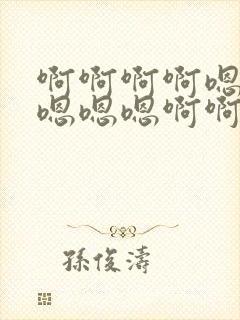 啊啊啊啊嗯
嗯嗯嗯啊啊
孫俊濤